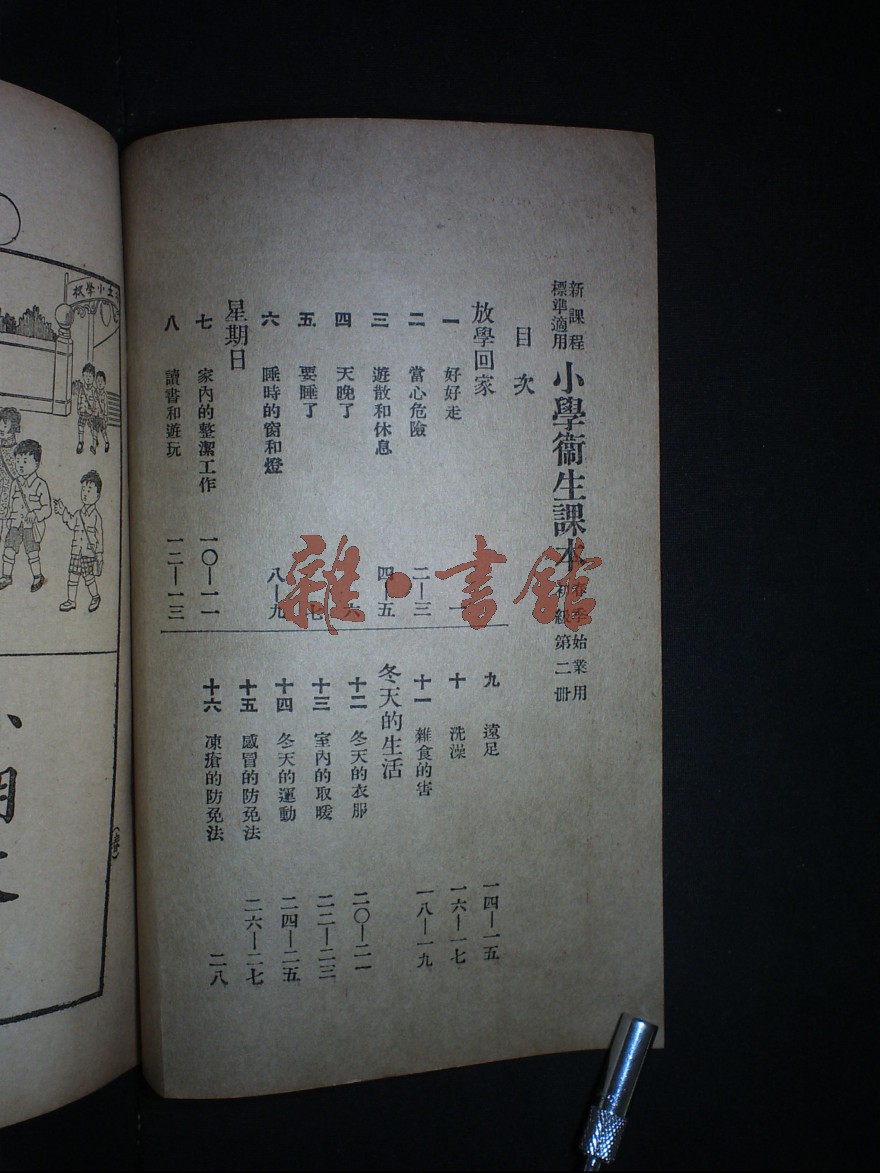 新課程
標準適用
小學衞生課本
春季始業用
初級第二冊
目次
放學回家
一 好好走 一
二 當心危險 二—三
三 遊散和休息 四—五
四 天晚了 六
五 要睡了 七
六 睡時的窗和燈 八—九
星期日
七 家內的整潔工作 一〇—一一
八 讀書和遊玩 一二—一三
九 遠足 一四—一五
十 洗澡 一六—一七
十一 雜食的害 一八—一九
冬天的生活
十二 冬天的衣服 二〇—二一
十三 室內的取暖 二二—二三
十四 冬天的運動 二四—二五
十五 感冒的防免法 二六—二七
十六 凍瘡的防免法 二八
雜·書館
土小學校